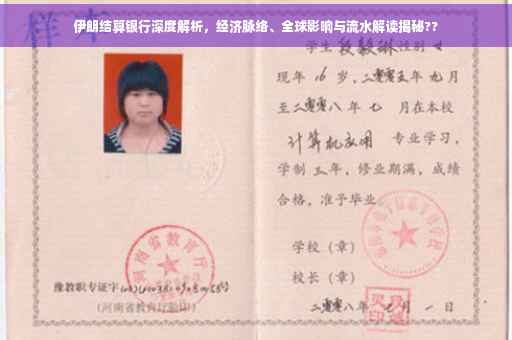 伊朗结算银行深度解析，经济脉络、全球影响与流水解读揭秘??
样本
学生段毅琳性别女
现年16岁，二零零五年九月
至二零零八年七月在本校
计算机应用 专业学习，
学制三年，修业期满，成绩
合格，准予毕业
学校（章）
校长（章）
二零零八年 月一日
河南省教育厅
豫教职专证字
（河南省教育厅验印）